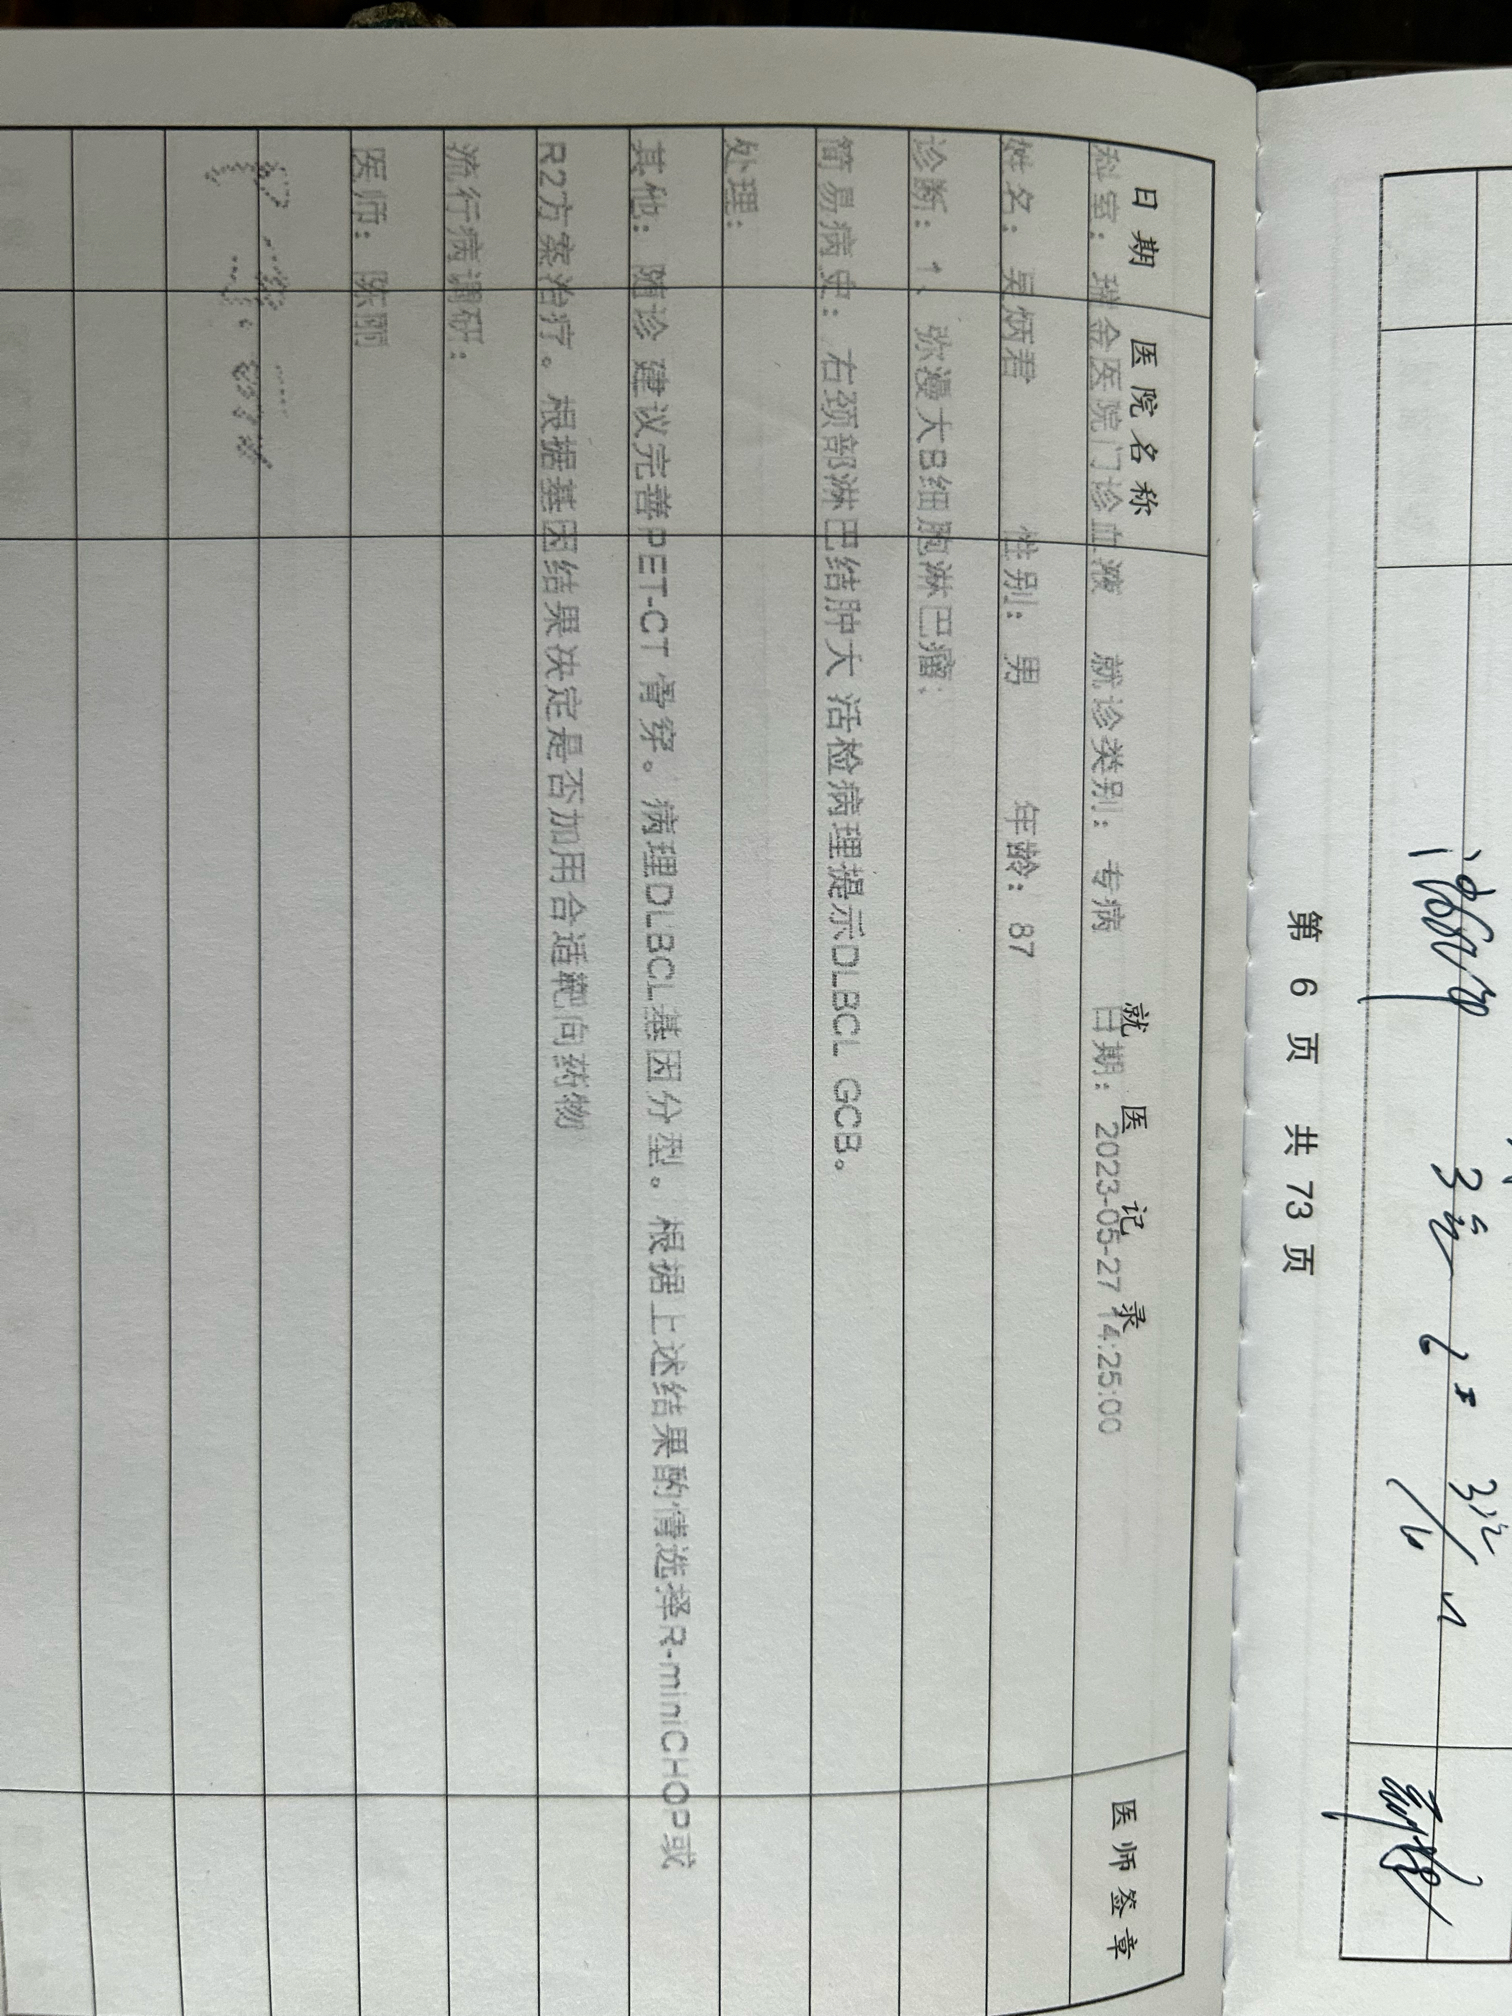 第 6 页 共 73 页
日期 医院名称 就医记录 医师签章
科室：瑞金医院门诊血液 就诊类别：专病 日期：2023-05-27 14:25:00
姓名：吴炳君 性别：男 年龄：87
诊断：1、弥漫大B细胞淋巴瘤；
简易病史：右颈部淋巴结肿大 活检病理提示DLBCL GCB。
处理：
其他：随诊 建议完善PET-CT 骨穿。病理DLBCL基因分型。根据上述结果酌情选择R-miniCHOP或
R2方案治疗。根据基因结果决定是否加用合适靶向药物
流行病调研：
医师：陈丽